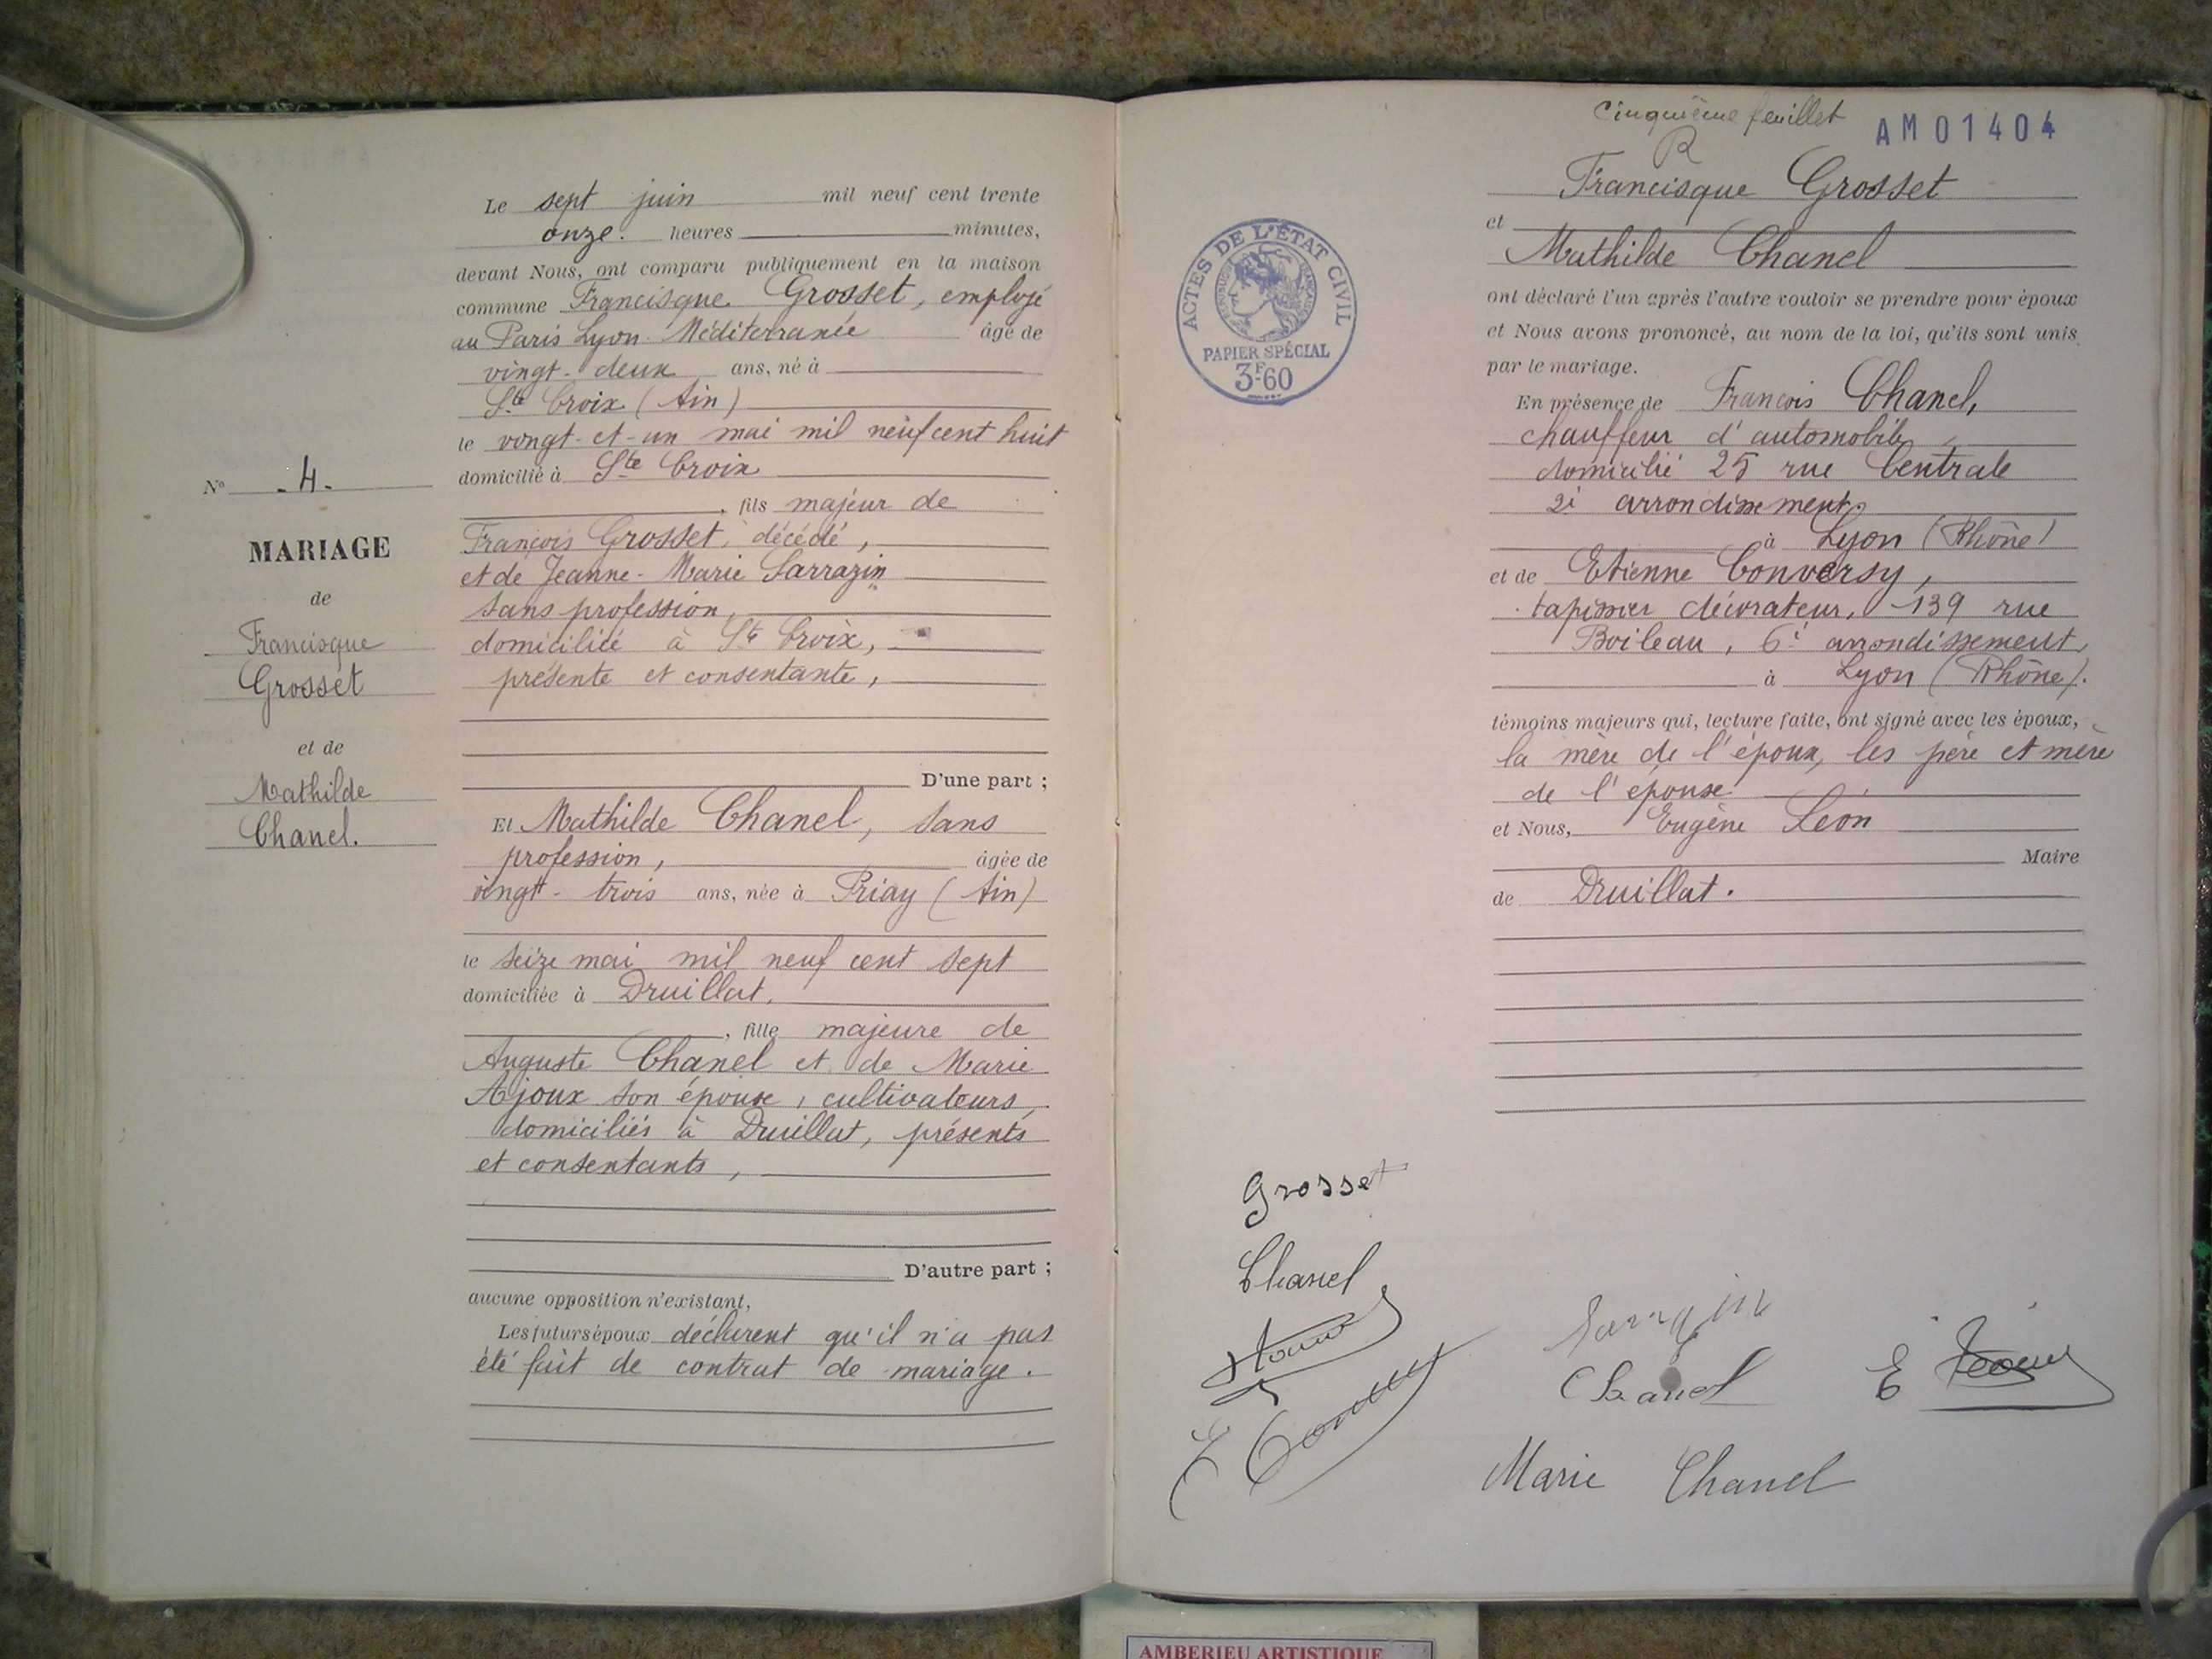 Le sept juin mil neuf cent trente
onze. heures minutes,
devant Nous, ont comparu publiquement en la maison
commune Francisque Grosset, employé
au Paris Lyon-Méditerranée âgé de
vingt-deux ans, né à
Ste Croix (Ain)
le vingt-et-un mai mil neuf cent huit
domicilié à Ste Croix
, fils majeur de
François Grosset, décédé,
et de Jeanne-Marie Sarrazin
sans profession,
domiciliée à Ste Croix,
présente et consentante,
D'une part ;
Et Mathilde Chanel, sans
profession, âgée de
vingt-trois ans, née à Priay (Ain)
le seize mai mil neuf cent sept
domiciliée à Druillat,
, fille majeure de
Auguste Chanel et de Marie
Ajoux son épouse, cultivateurs,
domiciliés à Druillat, présents
et consentants,
D'autre part ;
aucune opposition n'existant,
Les futurs époux déclarent qu'il n'a pas
été fait de contrat de mariage.
No -4-
MARIAGE
de
Francisque
Grosset
et de
Mathilde
Chanel.
Cinquième feuillet
AM01404
Francisque Grosset
et
Mathilde Chanel
ont déclaré l'un après l'autre vouloir se prendre pour époux
et Nous avons prononcé, au nom de la loi, qu'ils sont unis
par le mariage.
En présence de François Chanel,
chauffeur d'automobile,
domicilié 25 rue Centrale
2è arrondissement,
à Lyon (Rhône)
et de Etienne Conversy,
tapissier décorateur, 139 rue
Boileau, 6è arrondissement,
à Lyon (Rhône).
témoins majeurs qui, lecture faite, ont signé avec les époux,
la mère de l'époux, les père et mère
de l'épouse
et Nous, Eugène Léon
Maire
de Druillat.
ACTES DE L'ÉTAT CIVIL
RÉPUBLIQUE FRANÇAISE
PAPIER SPÉCIAL
3F60
Grosset
Chanel
Sarrazin
Chanel
E Léon
Marie Chanel
AMBERIEU ARTISTIQUE